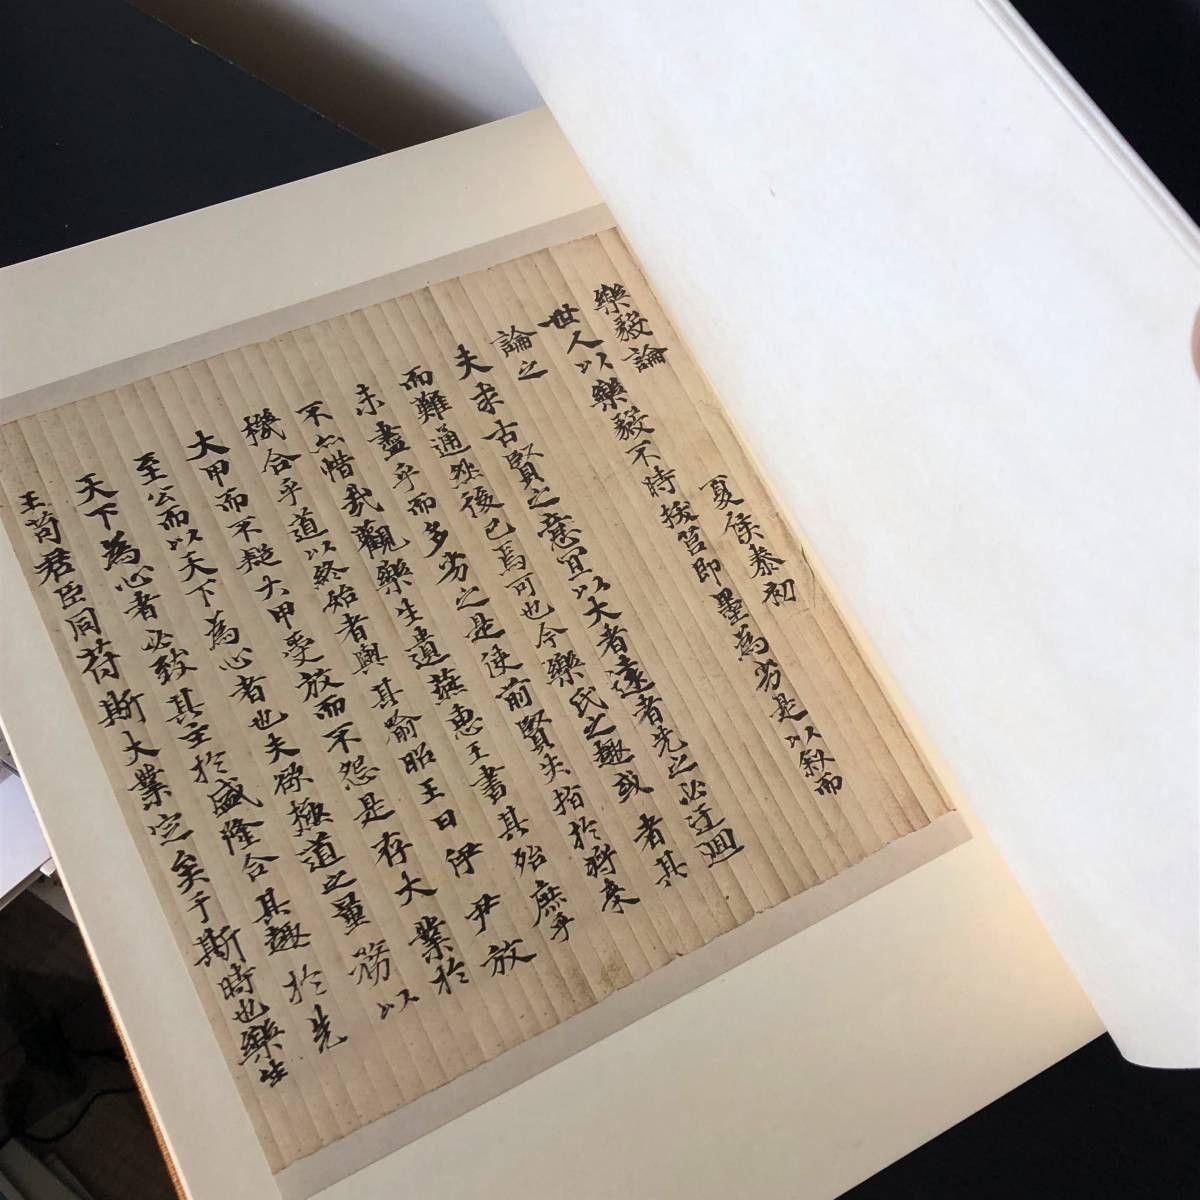 樂毅論
夏侯泰初
世人以樂毅不時拔莒即墨為劣是以叙而
論之
夫求古賢之意冝以大者遠者先之必迂迴
而難通然後已焉可也今樂氏之趣或者其
未盡乎而多劣之是使前賢失指於將來
不亦惜哉觀樂生遺燕惠王書其殆庶乎
機合乎道以終始者與其喻昭王曰伊尹放
大甲而不疑大甲受放而不怨是存大業於
至公而以天下為心者也夫欲極道之量務以
天下為心者必致其主於盛隆合其趣於先
王苟君臣同苻斯大業定矣于斯時也樂生